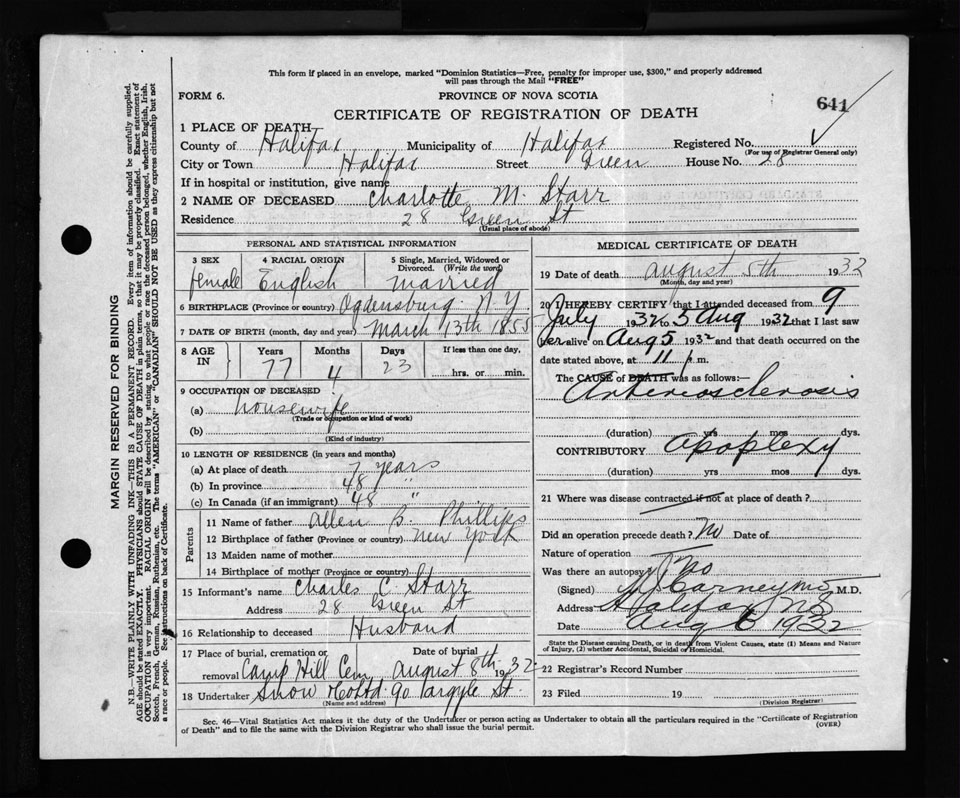 This form if placed in an envelope, marked "Dominion Statistics—Free, penalty for improper use, $300," and properly addressed
will pass through the Mail "FREE"
FORM 6.
PROVINCE OF NOVA SCOTIA
641
CERTIFICATE OF REGISTRATION OF DEATH
1 PLACE OF DEATH
County of Halifax Municipality of Halifax Registered No.
(For use of Registrar General only)
City or Town Halifax Street Green House No. 28
If in hospital or institution, give name
2 NAME OF DECEASED Charlotte M. Starr
Residence 28 Green St
(Usual place of abode)
PERSONAL AND STATISTICAL INFORMATION
3 SEX 4 RACIAL ORIGIN 5 Single, Married, Widowed or
Divorced. (Write the word)
female English Married
6 BIRTHPLACE (Province or country) Ogdensburg N.Y.
7 DATE OF BIRTH (month, day and year) March 13th 1855
8 AGE IN Years Months Days If less than one day,
77 4 23 hrs. or min.
9 OCCUPATION OF DECEASED
(a) housewife
(Trade or occupation or kind of work)
(b)
(Kind of industry)
10 LENGTH OF RESIDENCE (in years and months)
(a) At place of death 7 years
(b) In province 48 "
(c) In Canada (if an immigrant) 48 "
Parents
11 Name of father Allen B. Phillips
12 Birthplace of father (Province or country) New York
13 Maiden name of mother
14 Birthplace of mother (Province or country)
15 Informant's name Charles C. Starr
Address 28 Green St
16 Relationship to deceased Husband
17 Place of burial, cremation or removal Date of burial
Camp Hill Cem August 8th 1932
18 Undertaker Snow & Co Ltd 90 Argyle St.
(Name and address)
MEDICAL CERTIFICATE OF DEATH
19 Date of death August 5th 1932
(Month, day and year)
20 I HEREBY CERTIFY that I attended deceased from 9
July 1932 to 5 Aug 1932 that I last saw
her alive on Aug 5 1932 and that death occurred on the
date stated above, at 11 p.m.
The CAUSE of DEATH was as follows:—
Arteriosclerosis
(duration) yrs mos dys.
CONTRIBUTORY Apoplexy
(duration) yrs mos dys.
21 Where was disease contracted if not at place of death?
Did an operation precede death? No Date of
Nature of operation
Was there an autopsy? No
(Signed) Carney M.D. M.D.
Address Halifax NS
Date Aug 6 1932
State the Disease causing Death, or in death from Violent Causes, state (1) Means and Nature
of Injury, (2) whether Accidental, Suicidal or Homicidal.
22 Registrar's Record Number
23 Filed 19
(Division Registrar)
Sec. 46—Vital Statistics Act makes it the duty of the Undertaker or person acting as Undertaker to obtain all the particulars required in the "Certificate of Registration
of Death" and to file the same with the Division Registrar who shall issue the burial permit.
(OVER)
MARGIN RESERVED FOR BINDING
N.B.—WRITE PLAINLY WITH UNFADING INK—THIS IS A PERMANENT RECORD. Every item of information should be carefully supplied.
AGE should be stated EXACTLY. PHYSICIANS should STATE CAUSE OF DEATH in plain terms, so that it may be properly classified. Exact statement of
OCCUPATION is very important. RACIAL ORIGIN will be described by stating to what people or race the deceased person belonged, whether English, Irish,
Scotch, French, German, Russian, Ruthenian, etc. The terms "AMERICAN" or "CANADIAN" SHOULD NOT BE USED as they express citizenship but not
a race or people. See instructions on back of Certificate.